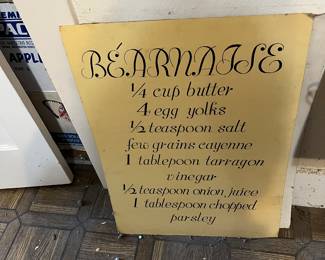 BÉARNAISE
¼ cup butter
4 egg yolks
½ teaspoon salt
few grains cayenne
1 tablepoon tarragon
vinegar
½ teaspoon onion, juice
1 tablespoon chopped
parsley